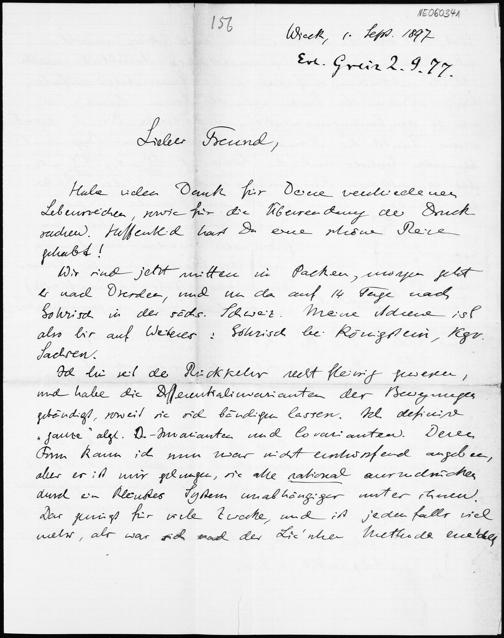 156
NE060341
Wieck, 1. Sept. 1897
Erh. Greiz 2.9.77.
Lieber Freund,
Habe vielen Dank für Deine verschiedenen
Lebenszeichen, sowie für die Übersendung der Druck
sachen. Hoffentl'd hast Du eine schöne Reise
gehabt!
Wir sind jetzt mitten im Packen, morgen geht
es nach Dresden, und von da auf 14 Tage nach
Gohrisch in der sächs. Schweiz. Meine Adresse ist
also bis auf Weiteres: Gohrisch bei Königstein, Kgr.
Sachsen.
Ich bin seit der Rückkehr recht fleissig gewesen,
und habe die Differentialinvarianten der Bewegungen
gebändigt, soweit sie sich bändigen lassen. Ich definire
"ganze" algt. D.-Invarianten und Covarianten. Deren
Form kann ich nun zwar nicht erschöpfend angeben,
aber es ist mir gelungen, sie alle rational auszudrücken
durch ein System unabhängiger unter ihnen.
Das genügt für viele Zwecke, und ist jedenfalls viel
mehr, als was sich nach der Lie'schen Methode